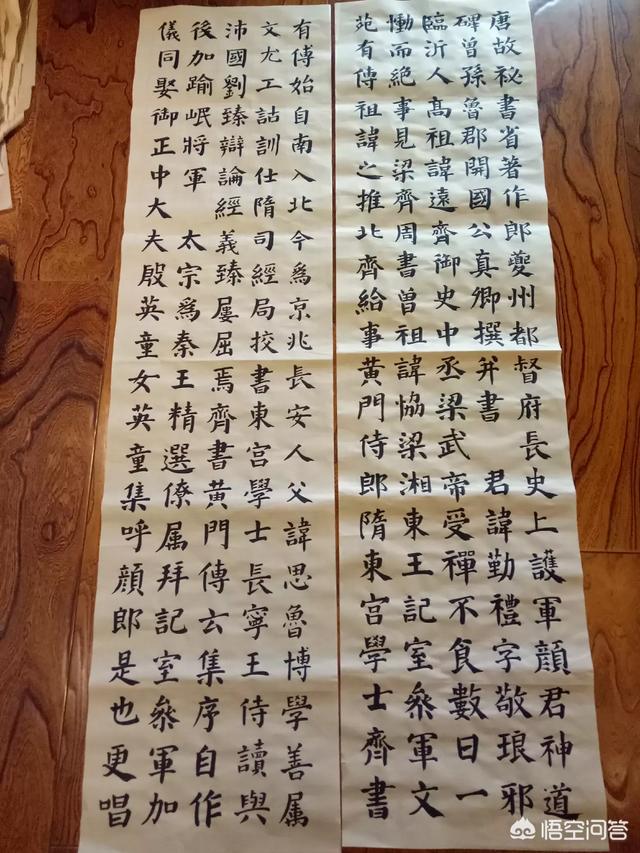 唐故祕書省著作郎夔州都督府長史上護軍顏君神道
碑曾孫魯郡開國公真卿撰并書 君諱勤禮字敬琅邪
臨沂人高祖諱遠齊御史中丞梁武帝受禪不食數日一
慟而絕事見梁齊周書曾祖諱協梁湘東王記室叅軍文
苑有傳祖諱之推北齊給事黃門侍郎隋東宮學士齊書
有傳始自南入北今為京兆長安人父諱思魯博學善属
文尤工詁訓仕隋司經局挍書東宮學士長寧王侍讀與
沛國劉臻辯論經義臻屡屈焉齊書黃門傳云集序自作
後加踰岷將軍 太宗為秦王精選僚属拜記室叅軍加
儀同娶御正中大夫殷英童女英童集呼顏郎是也更唱
悟空问答